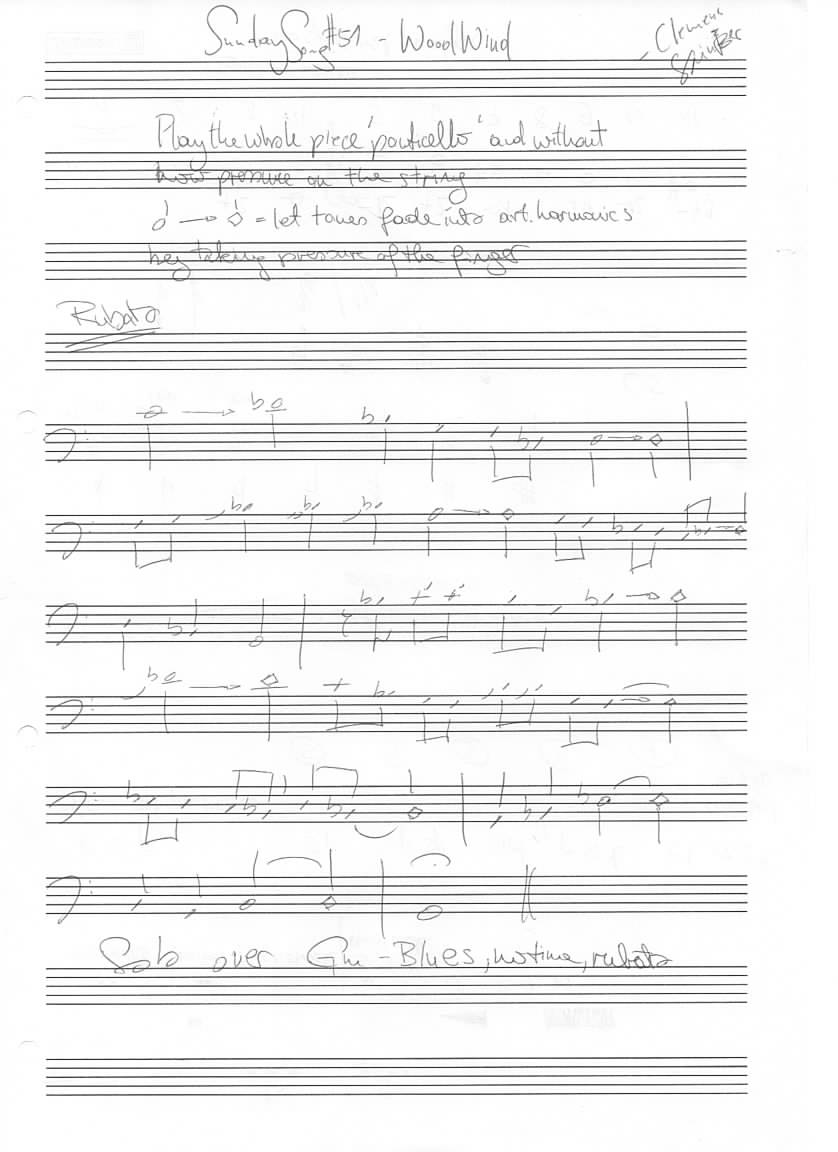 Sunday Song #51 - WoodWind
Clemens
Play the whole piece 'ponticello' and without
pressure on the string
= let tones fade into art. harmonics
taking pressure of the finger
Rubato
Solo over Gm - Blues, no time, rubato